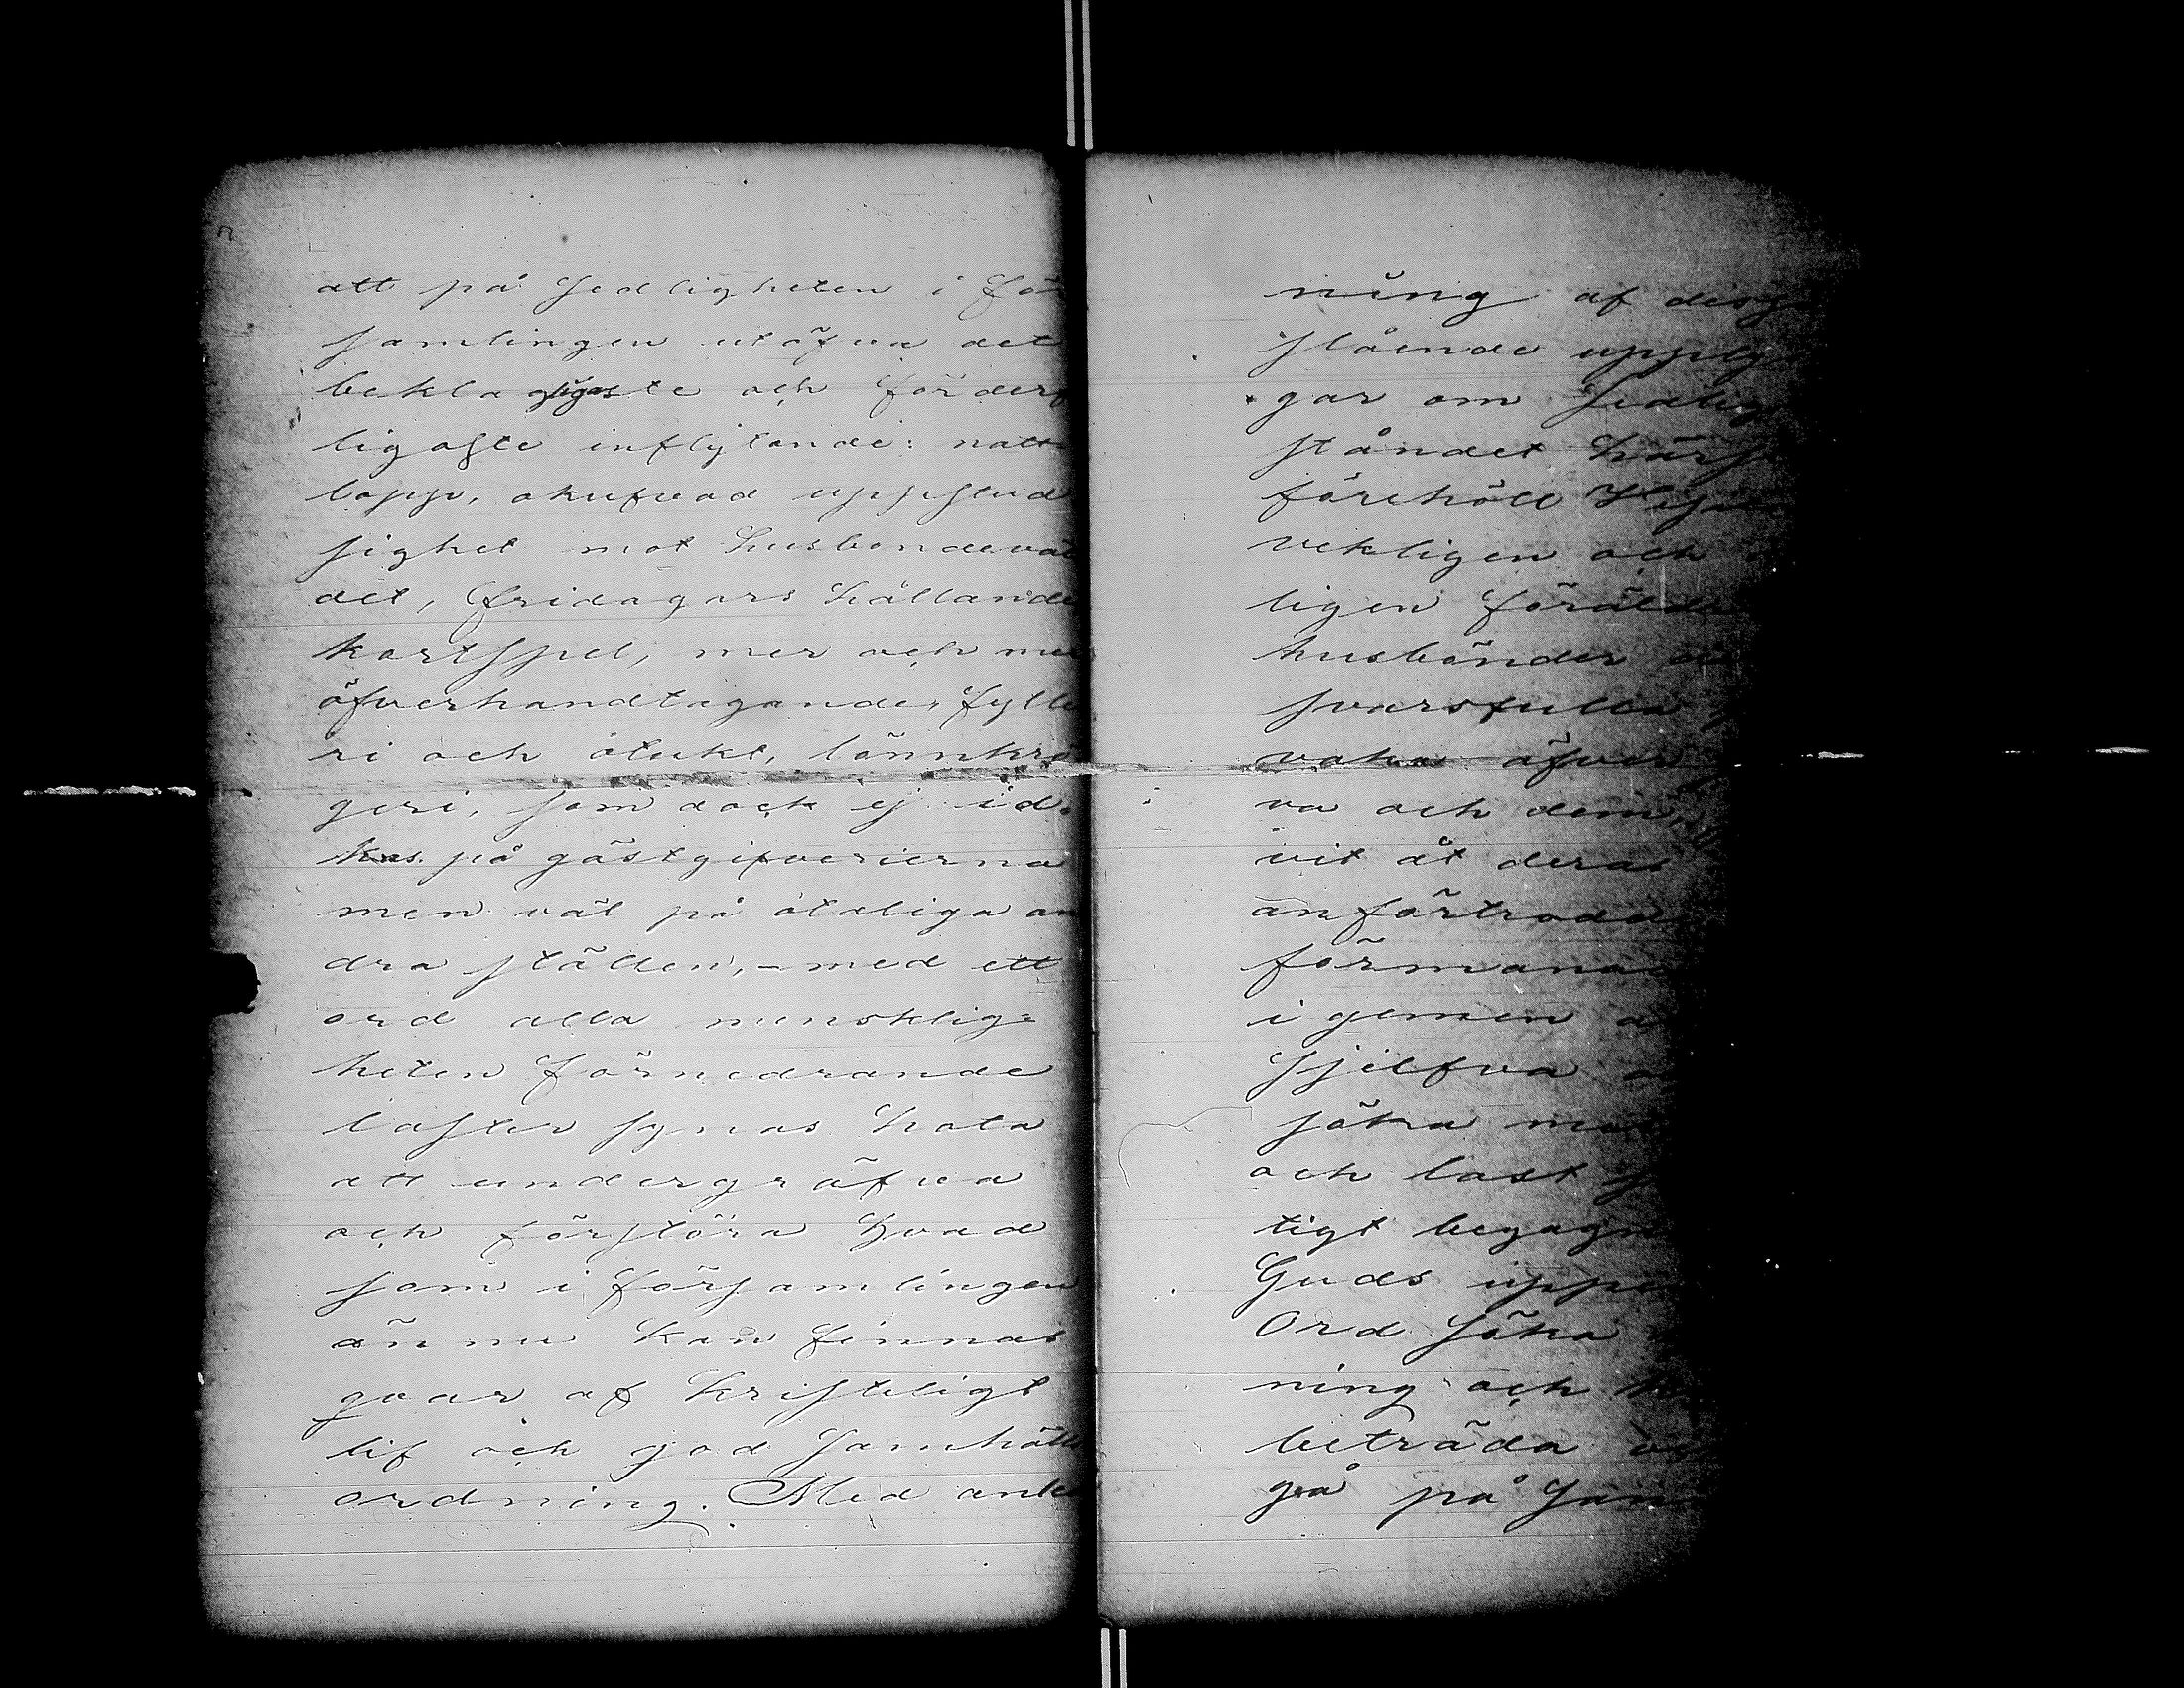 att på Sedligheten i för
samlingen utöfva det
bekla gligaste och förderf
ligaste inflytande: natt
lopp, okufvad uppstud
sighet mot husbondevål
det, fridagars hållande
kortspel, mer och mer
öfverhandtagande fylle
ri och otukt, lönnkrö
geri, som dock ej id-
kas på gästgifverierna
men väl på otaliga an
dra ställen, - med ett
ord alla mensklig=
heten förnedrande
laster synas hota
att undergräfva
och förstöra hvad
som i församlingen
ännu kan finnas
qvar af kristeligt
lif och god Samhälls
ordning. Med anled
ning af desse
stående upply
gar om Sedlig
ståndet härst
föreholl
vekligen och
ligen föräldr
husbönder
svarsfulla
vaka öfver
va och dem,
vit åt deras
anförtrodd
förmana
i gemen a
sjelfva
söka mot
och last
tigt begagn
Guds uppen
Ord söka
ning och
beträda
gå på Sam